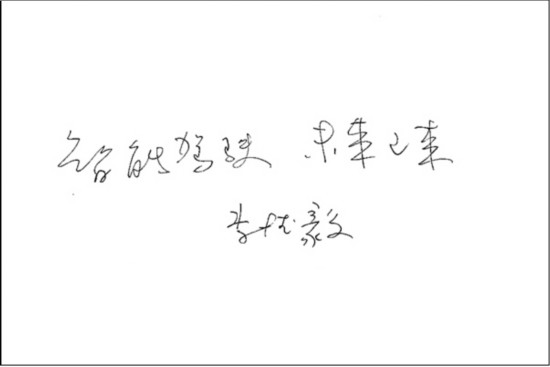 智能驾驶 未来已来
李德毅